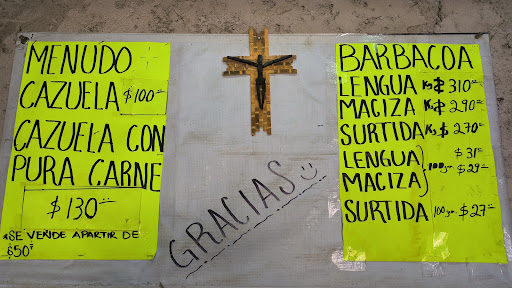 MENUDO
CAZUELA $100=
CAZUELA CON
PURA CARNE
$130=
*SE VENDE APARTIR DE
$50=
GRACIAS
BARBACOA
LENGUA Kg $310=
MACIZA Kg $290=
SURTIDA Kg $270=
LENGUA $31=
MACIZA 100gr $29=
SURTIDA 100gr $27=